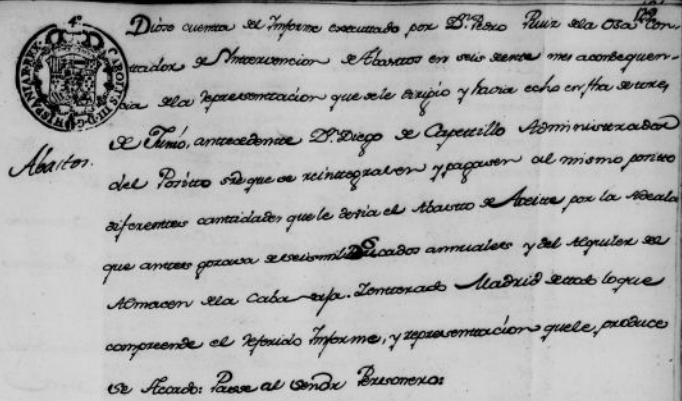 129
4º
CAROLUS III D G HISPANIAR REX
Diose cuenta del Informe executado por Dn. Pedro Ruiz dela Osa Con-
tador de Yntervencion de Abastos en seis deeste mes aconsequen-
cia dela representacion quesele dirigio y havia echo en fha detres,
de Junio, antecedente Dn. Diego de Capetillo Administrador
Abastos.
del Posito sre que se reintegrasen y pagasen al mismo posito
diferentes cantidades que le devia el Abasto de Aceite por la Adeala
que antes gozava deseismil Ducados annuales y del Alquiler del
Almacen dela Caba baja. Yenterado Madrid detodo loque
compreende el referido Informe, y representacion quele produce
Se Acordó: Pase al señor Personero: